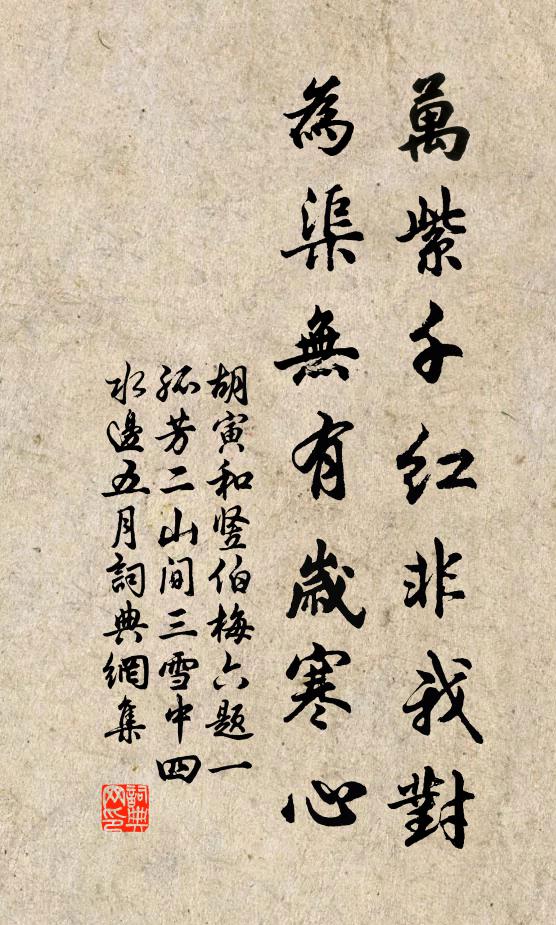 萬紫千红非我對
為渠無有歲寒心
胡寅和竖伯梅六题一
孤芳二山间三雪中四
水邊五月詞典網集
詞典网印